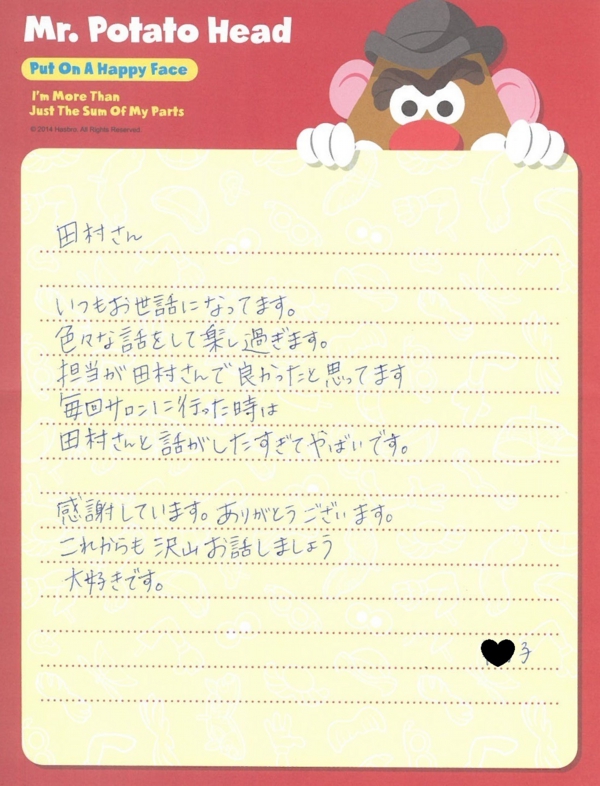 Mr. Potato Head
Put On A Happy Face
I'm More Than
Just The Sum Of My Parts
© 2014 Hasbro. All Rights Reserved.
田村さん
いつもお世話になってます。
色々な話をして楽し過ぎます。
担当が田村さんで良かったと思ってます
毎回サロンに行った時は
田村さんと話がしたすぎてやばいです。
感謝しています。ありがとうございます。
これからも沢山お話しましょう
大好きです。
子